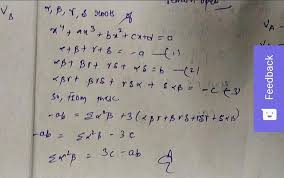 α, β, γ, δ roots of
x⁴ + ax³ + bx² + cx + d = 0
α + β + γ + δ = -a — (1)
αβ + βγ + γδ + αδ = b — (2)
αβγ + βγδ + γδα + δαβ = -c — (3)
So, from these
-ab = Σα²β + 3(αβγ + βγδ + γδα + δαβ)
-ab = Σα²β - 3c
Σα²β = 3c - ab
Feedback